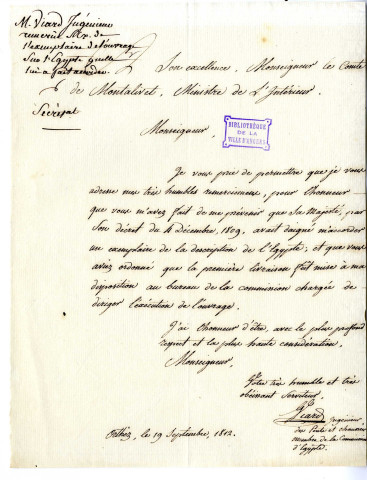 M. Viard Ingénieur
remercie M.gr de
l'exemplaire de l'ouvrage
Sur l'Egypte qu'elle
lui a fait accorder
Secrétat
Son excellence, Monseigneur le Comte
de Montalivet, Ministre de L'Intérieur.
BIBLIOTHÈQUE
DE LA
VILLE D'ANGERS
Monseigneur,
Je vous prie de permettre que je vous
adresse mes très humbles remerciemens, pour l'honneur
que vous m'avez fait de me prévenir que Sa Majesté, par
Son décret du 4 décembre, 1809, avait daigné m'accorder
un exemplaire de la description de l'Egypte; et que vous
aviez ordonné que la première livraison fût mise à ma
disposition au bureau de la commission chargée de
diriger l'exécution de l'ouvrage.
J'ai l'honneur d'être, avec le plus profond
respect et la plus haute considération,
Monseigneur,
Votre très humble et très
obéissant Serviteur,
Viard Ingénieur
des Ponts et chaussées
membre de la Commission
d'Egypte.
Orthez, le 19 Septembre, 1812.